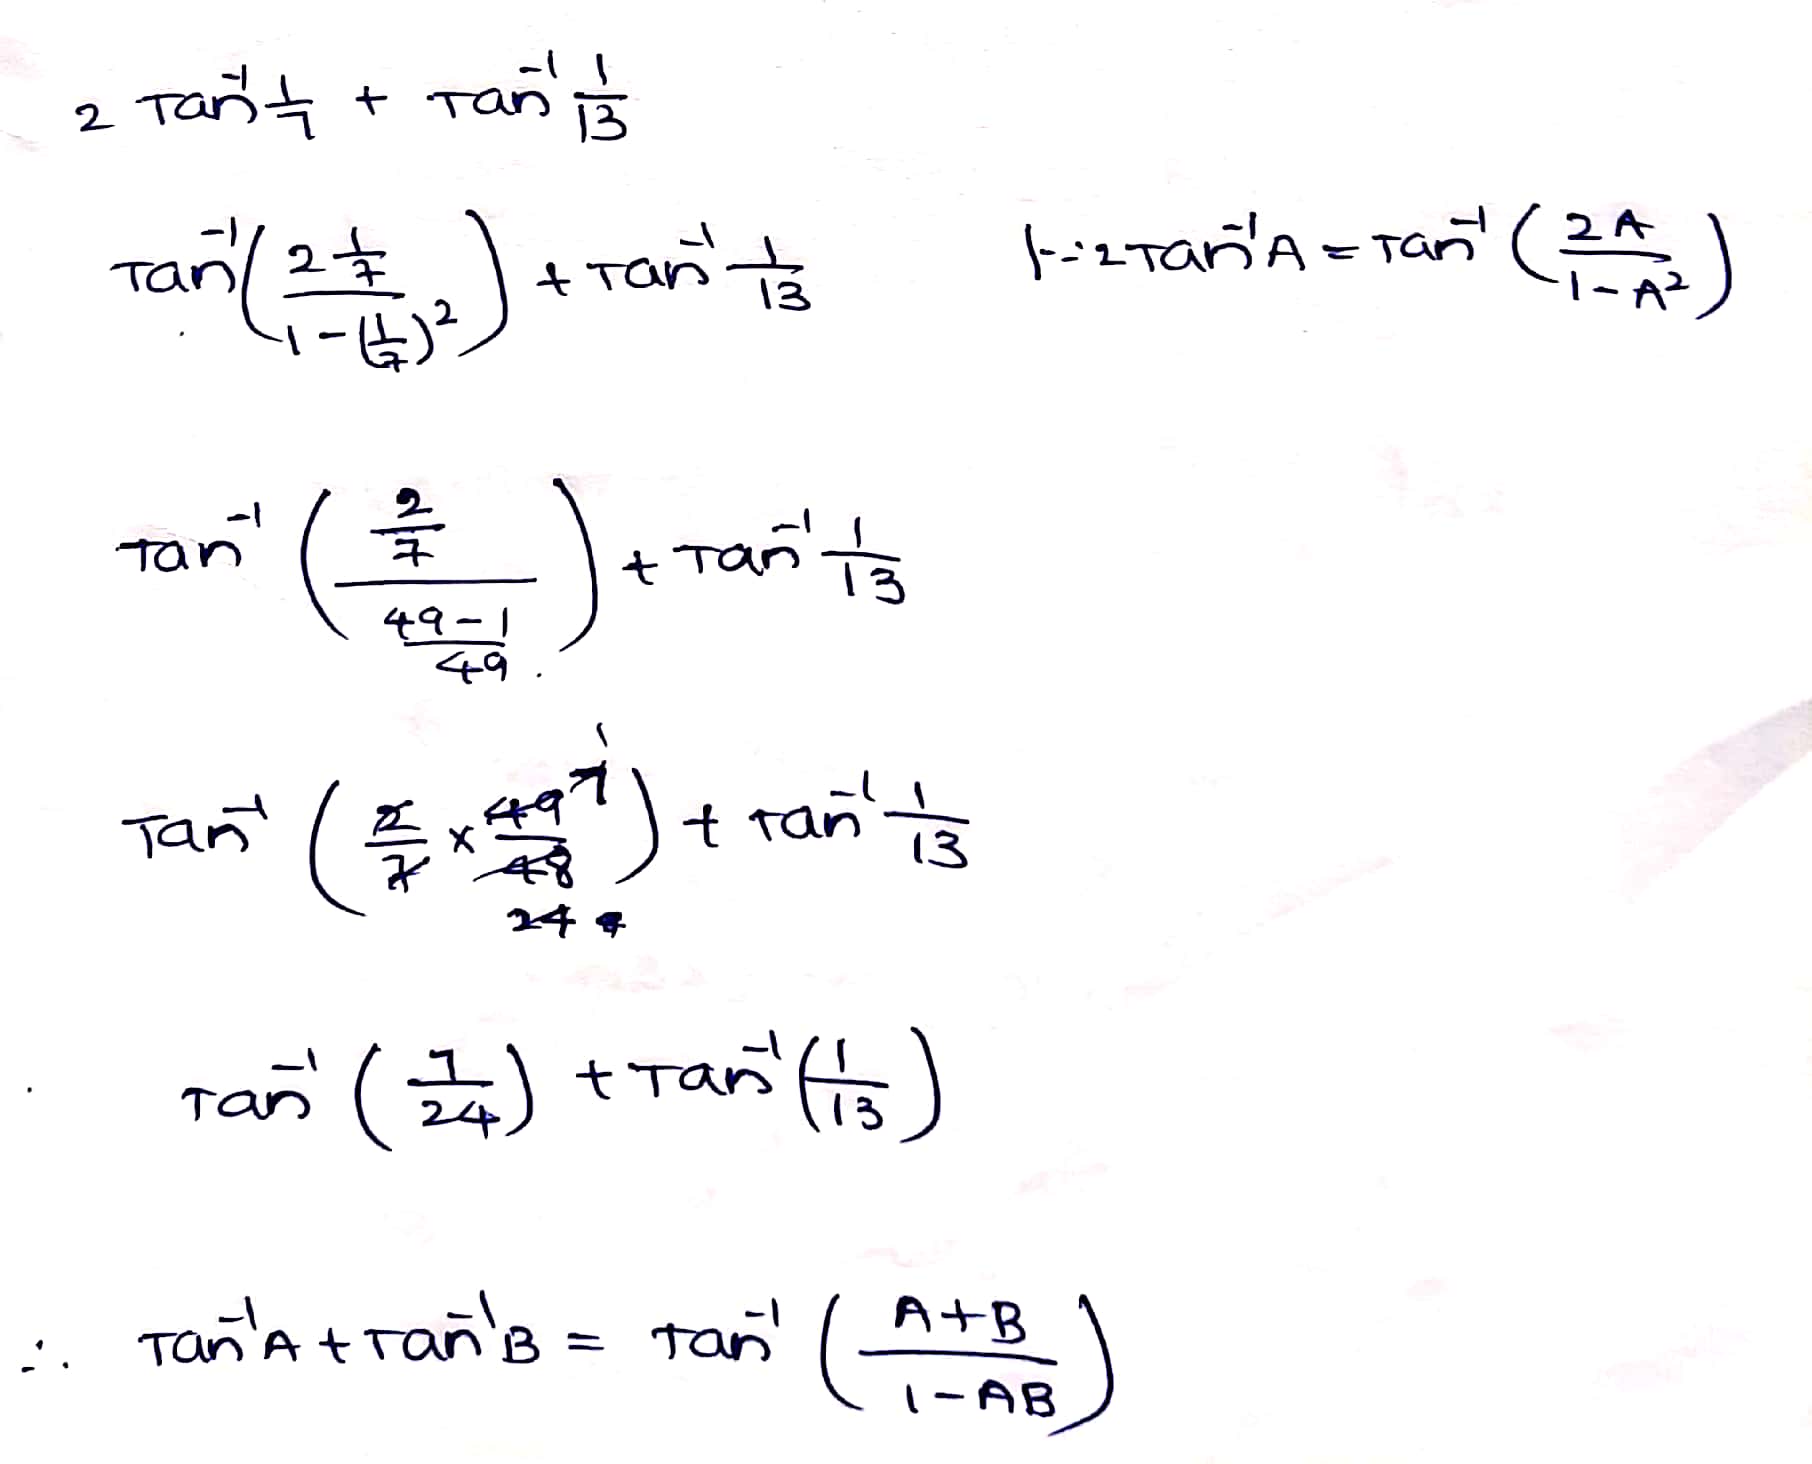 2 Tan⁻¹ 1/7 + Tan⁻¹ 1/13
Tan⁻¹( (2 1/7) / (1-(1/7)²) ) + Tan⁻¹ 1/13 [∵ 2Tan⁻¹A = Tan⁻¹ ( 2A / (1-A²) )
Tan⁻¹ ( (2/7) / ((49-1)/49) ) + Tan⁻¹ 1/13
Tan⁻¹ ( 2/7 × 49/48 ) + Tan⁻¹ 1/13
7 1
24
Tan⁻¹ ( 7/24 ) + Tan⁻¹ ( 1/13 )
∴ Tan⁻¹A + Tan⁻¹B = Tan⁻¹ ( (A+B) / (1-AB) )